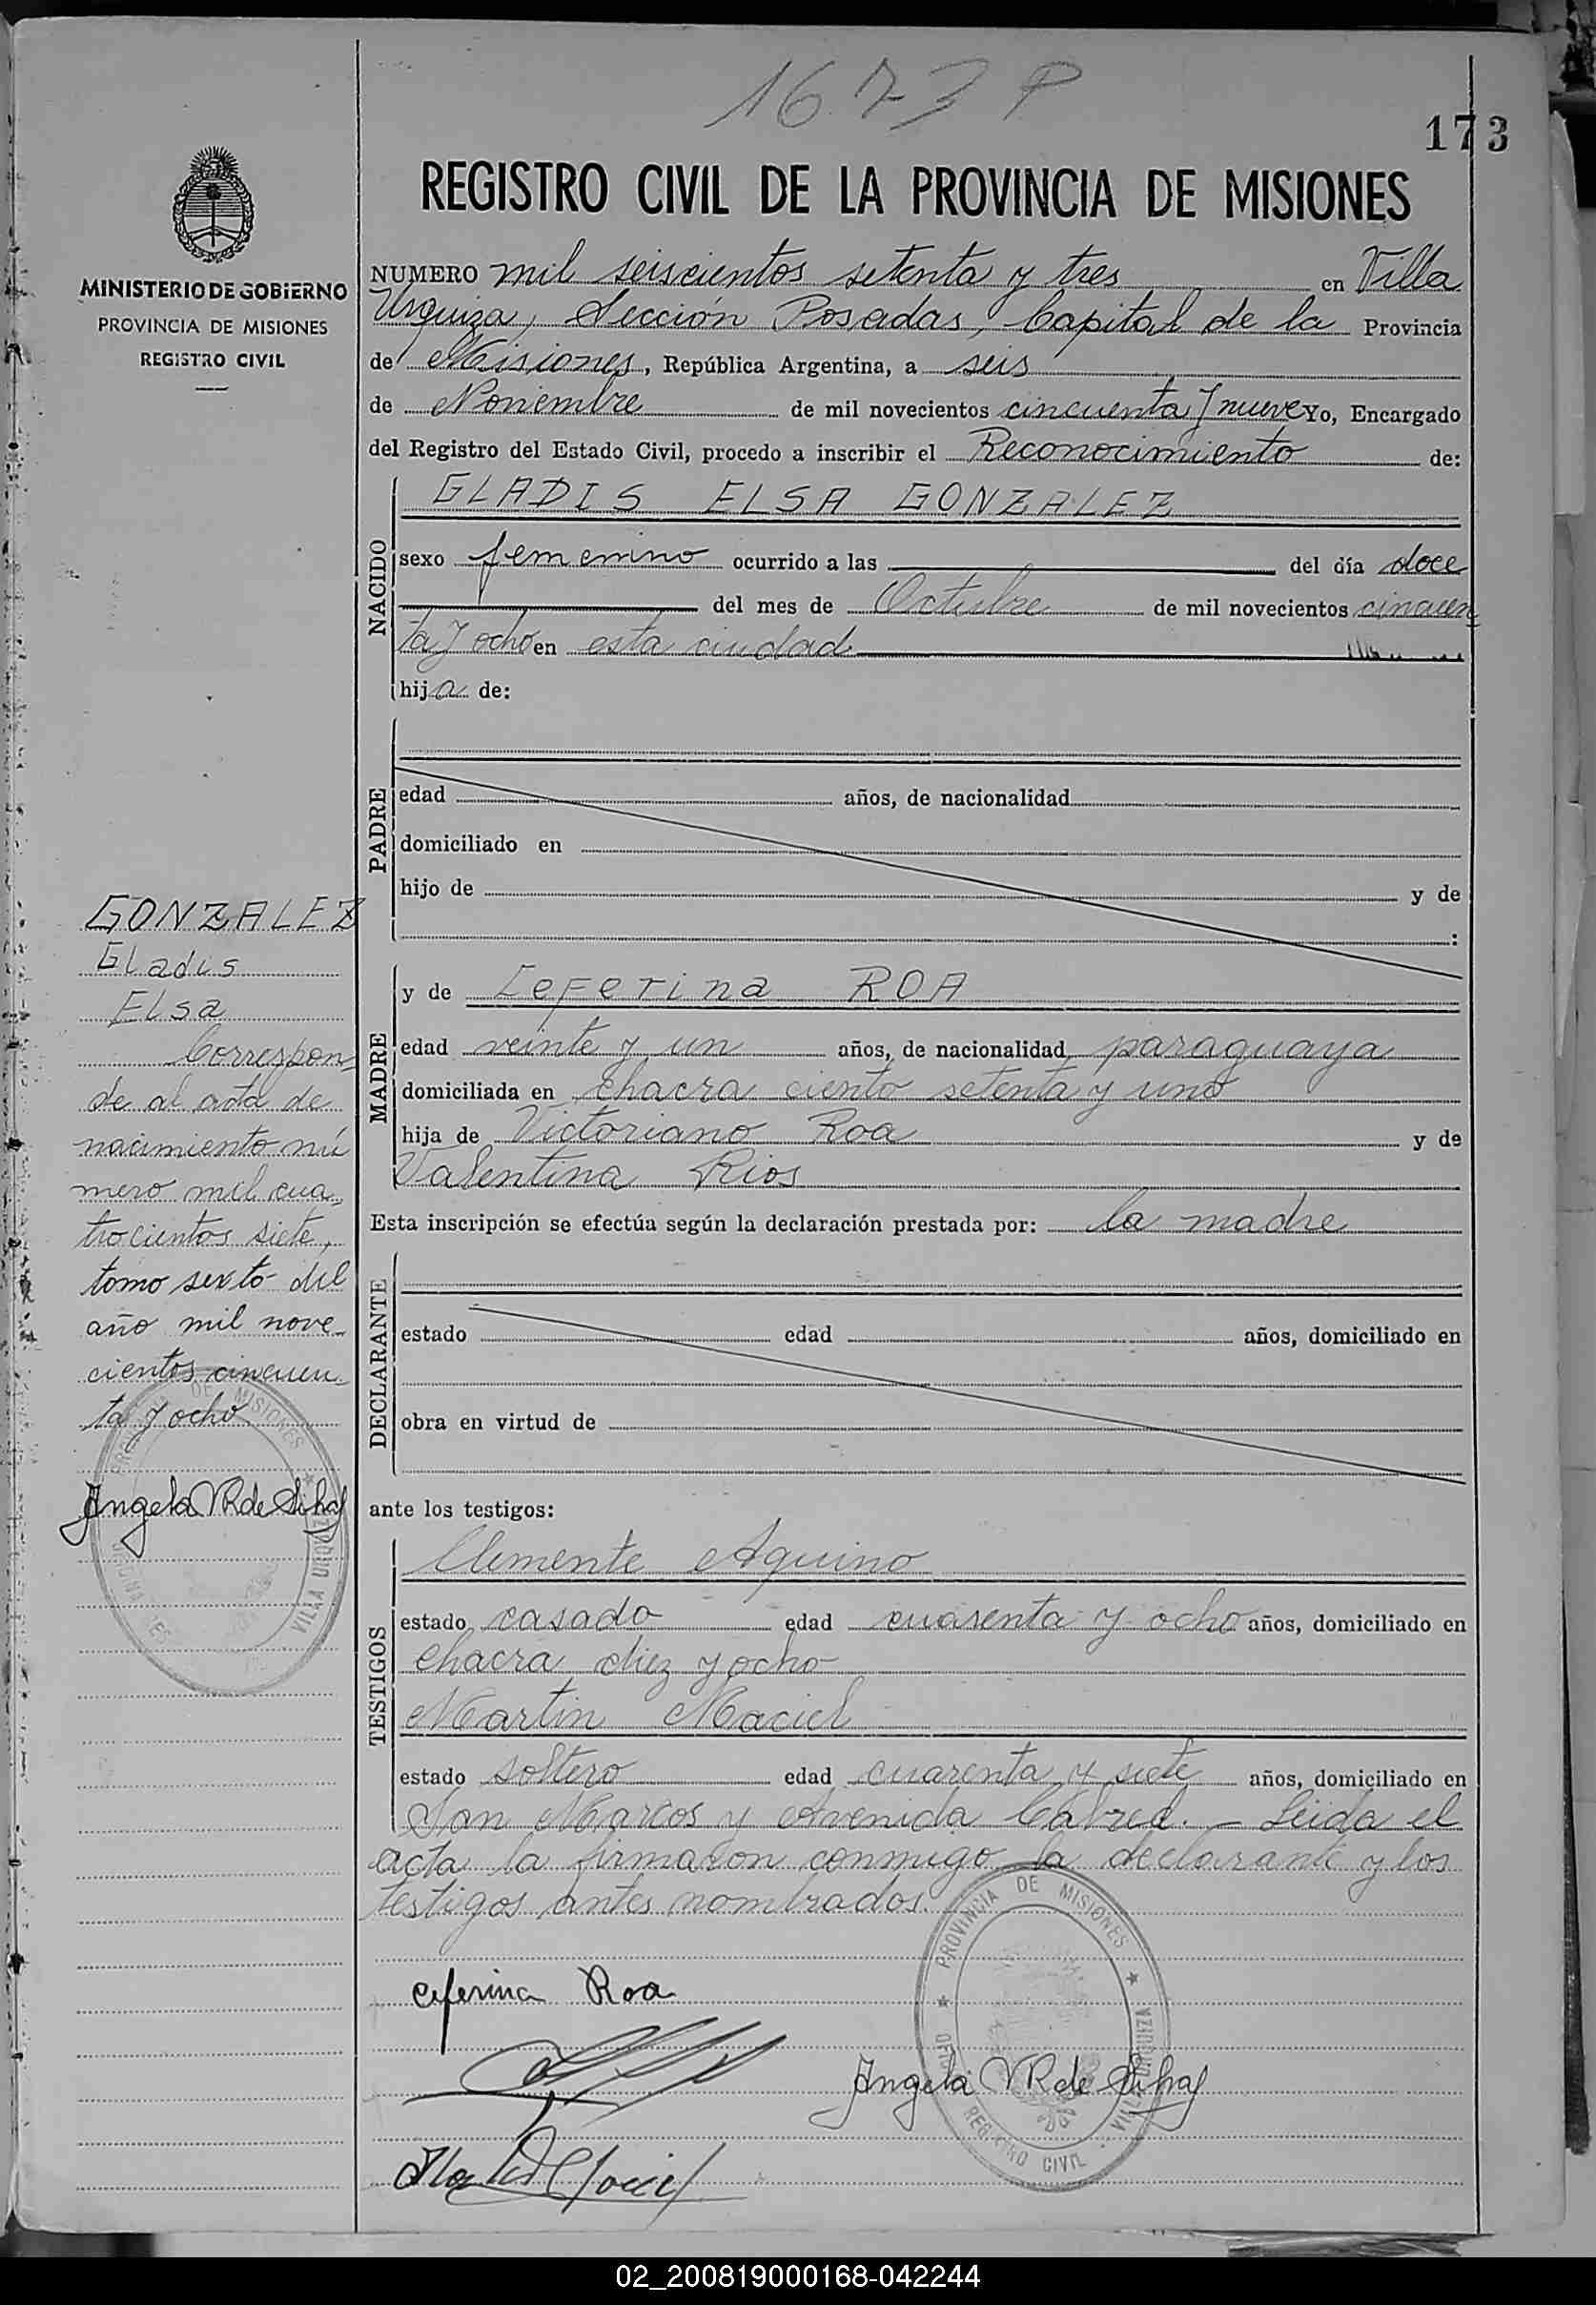 1673 P
173
REGISTRO CIVIL DE LA PROVINCIA DE MISIONES
MINISTERIO DE GOBIERNO
PROVINCIA DE MISIONES
REGISTRO CIVIL
NUMERO mil seiscientos setenta y tres en Villa
Urquiza, Sección Posadas, Capital de la Provincia
de Misiones, República Argentina, a seis
de Noviembre de mil novecientos cincuenta y nueve Yo, Encargado
del Registro del Estado Civil, procedo a inscribir el Reconocimiento de:
NACIDO
GLADIS ELSA GONZALEZ
sexo femenino ocurrido a las del día doce
del mes de Octubre de mil novecientos cincuen
ta y ocho en esta ciudad
hija de:
PADRE
edad años, de nacionalidad
domiciliado en
hijo de y de
:
MADRE
y de Ceferina ROA
edad veinte y un años, de nacionalidad paraguaya
domiciliada en chacra ciento setenta y uno
hija de Victoriano Roa y de
Valentina Rios
Esta inscripción se efectúa según la declaración prestada por: la madre
DECLARANTE
estado edad años, domiciliado en
obra en virtud de
ante los testigos:
TESTIGOS
Clemente Aquino
estado casado edad cuarenta y ocho años, domiciliado en
chacra diez y ocho
Martin Maciel
estado soltero edad cuarenta y siete años, domiciliado en
San Marcos y Avenida Cabred. - Leida el
acta la firmaron conmigo la declarante y los
testigos antes nombrados.
Ceferina Roa
Angela VR de
PROVINCIA DE MISIONES
VILLA URQUIZA
REGISTRO CIVIL
GONZALEZ
Gladis
Elsa
Correspon
de al acta de
nacimiento nú
mero mil cua
trocientos siete,
tomo sexto del
año mil nove
cientos cincuen
ta y ocho
Angela VR de
DE MISIONES
VILLA URQUIZA
02_200819000168-042244